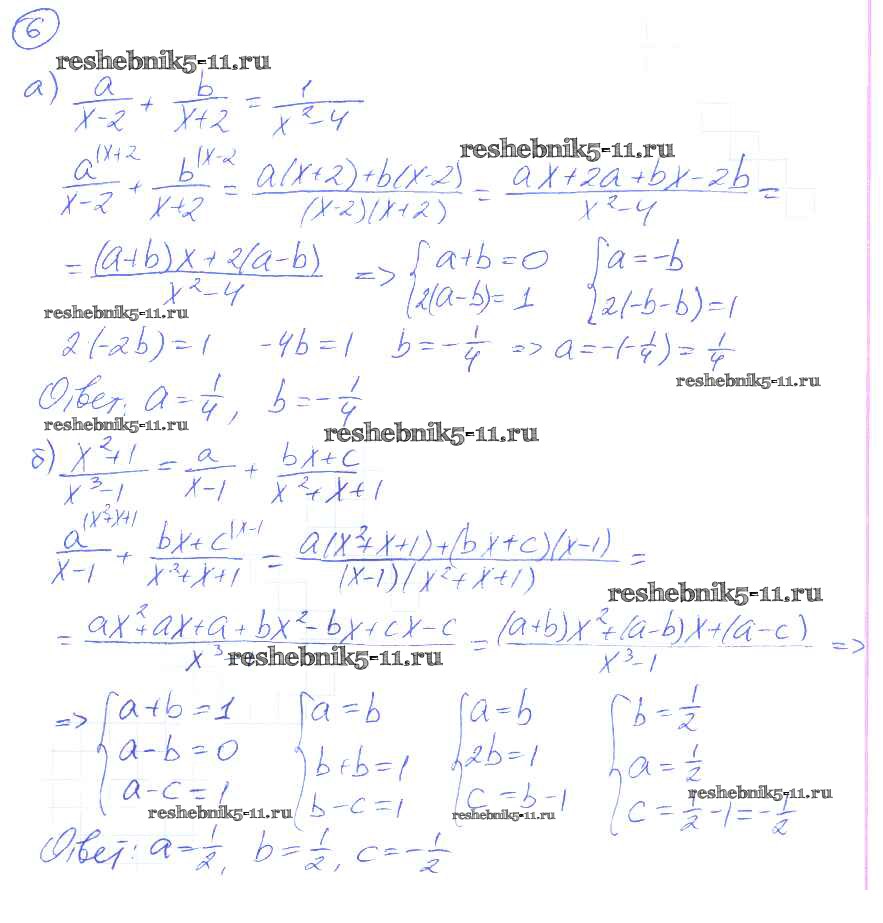 6
reshebnik5-11.ru
а) a/(x-2) + b/(x+2) = 1/(x²-4)
reshebnik5-11.ru
a^(|x+2)/(x-2) + b^(|x-2)/(x+2) = (a(x+2)+b(x-2))/((x-2)(x+2)) = (ax+2a+bx-2b)/(x²-4) =
= ((a+b)x+2(a-b))/(x²-4) => { a+b=0 { a=-b
2(a-b)=1 2(-b-b)=1
reshebnik5-11.ru
2(-2b)=1 -4b=1 b=-1/4 => a=-(-1/4)=1/4
reshebnik5-11.ru
Ответ: a=1/4, b=-1/4
reshebnik5-11.ru
reshebnik5-11.ru
б) (x²+1)/(x³-1) = a/(x-1) + (bx+c)/(x²+x+1)
a^(|x²+x+1)/(x-1) + (bx+c)^(|x-1)/(x²+x+1) = (a(x²+x+1)+(bx+c)(x-1))/((x-1)(x²+x+1)) =
reshebnik5-11.ru
= (ax²+ax+a+bx²-bx+cx-c)/(x³ = ((a+b)x²+(a-b)x+(a-c))/(x³-1) =>
reshebnik5-11.ru
=> { a+b=1 { a=b { a=b { b=1/2
a-b=0 b+b=1 2b=1 a=1/2
a-c=1 b-c=1 c=b-1 c=1/2-1=-1/2
reshebnik5-11.ru
reshebnik5-11.ru reshebnik5-11.ru
Ответ: a=1/2, b=1/2, c=-1/2